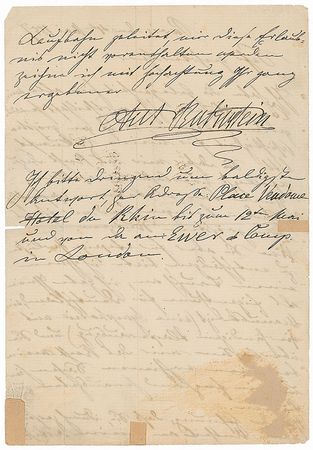 Laufbahn geleitet mir diese Erlaub-
nis nicht vorenthalten werden
zeichne ich mit Hochachtung Ihr ganz
ergebener
Ant. Rubinstein
Ich bitte dringend um baldigste
Antwort zur Adresse Place Vendome
Hotel du Rhin bis zum 12ten Mai
und von da an Ewer & Comp.
in London.